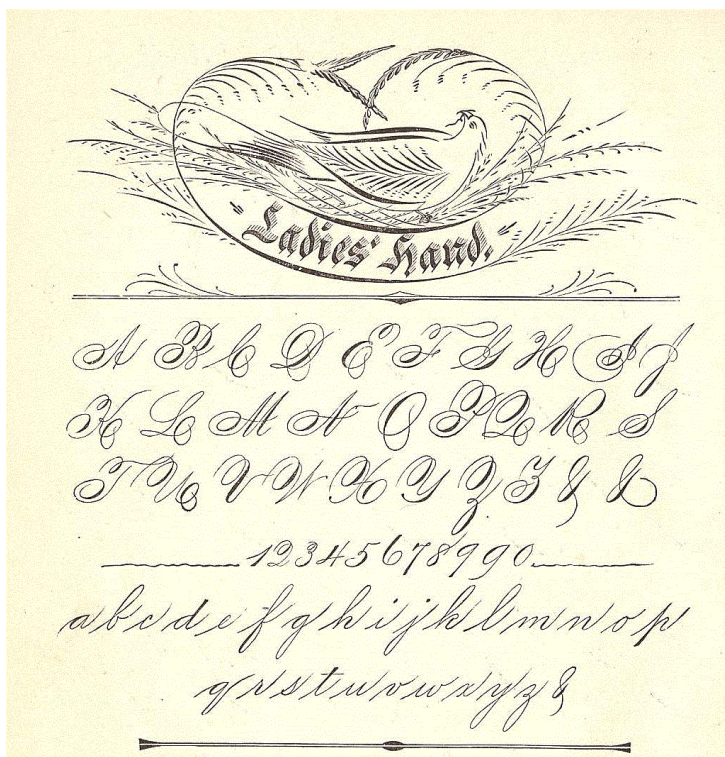 Ladies' Hand.
A B C D E F G H I J
K L M N O P Q R S
T U V W X Y Z Z & &
12345678990
a b c d e f g h i j k l m n o p
q r s t u v w x y z &